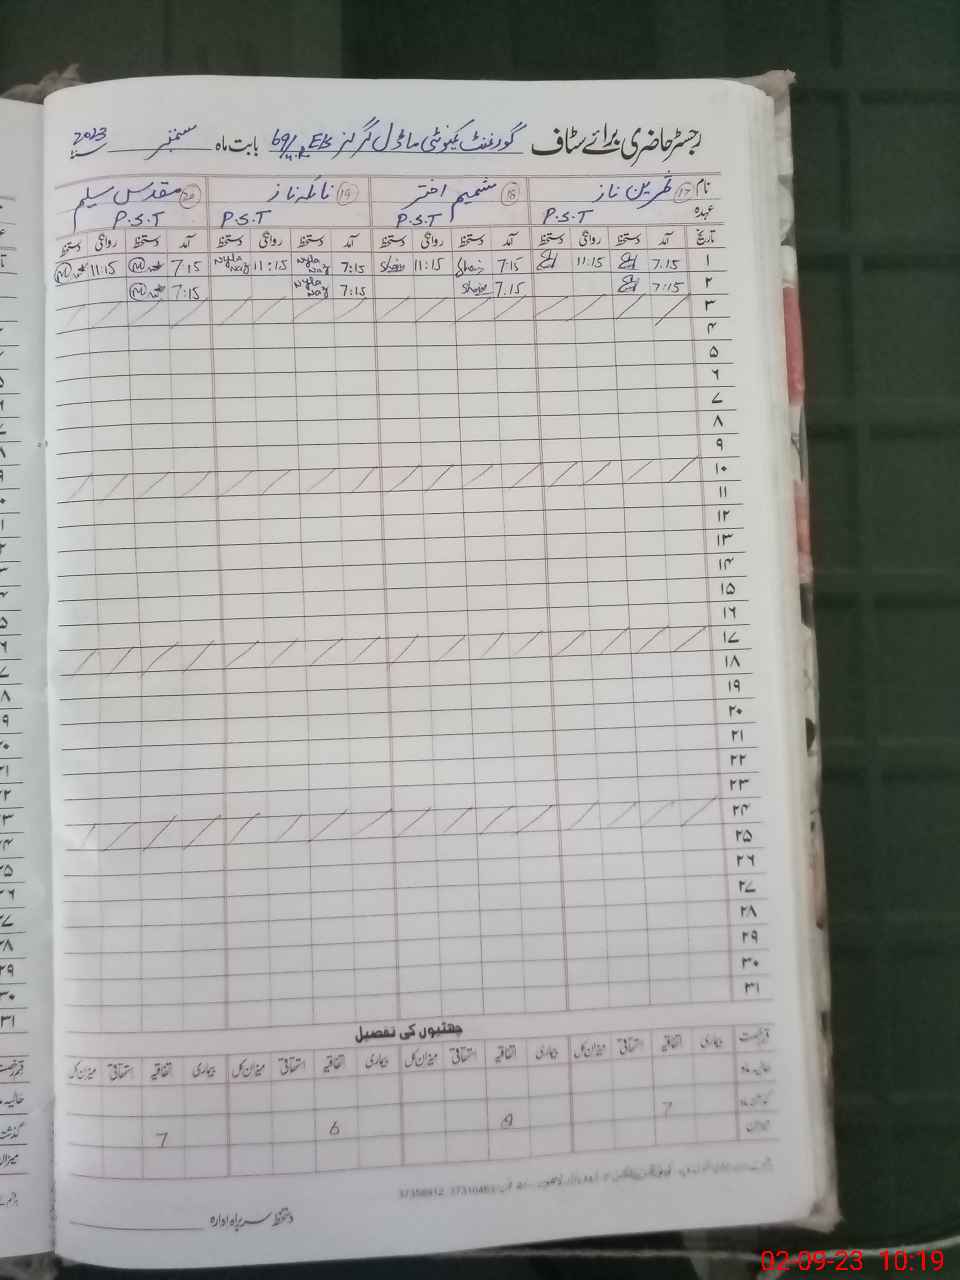 رجسٹر حاضری برائے سٹاف گورنمنٹ کمیونٹی ماڈل گرلز E/S 69/4.R بابت ماہ ستمبر سنہ 2023
نام 17 ثمرین ناز 18 شمیم اختر 19 نائلہ ناز 20 مقدس سلیم
عہدہ P.S.T P.S.T P.S.T P.S.T
تاریخ آمد دستخط روانگی دستخط آمد دستخط روانگی دستخط آمد دستخط روانگی دستخط آمد دستخط روانگی دستخط
۱ 7:15 11:15 7:15 11:15 7:15 Nyla Naz 11:15 Nyla Naz 7:15 11:15
۲ 7:15 7:15 7:15 Nyla Naz 7:15
۳
۴
۵
۶
۷
۸
۹
۱۰
۱۱
۱۲
۱۳
۱۴
۱۵
۱۶
۱۷
۱۸
۱۹
۲۰
۲۱
۲۲
۲۳
۲۴
۲۵
۲۶
۲۷
۲۸
۲۹
۳۰
۳۱
چھٹیوں کی تفصیل
قسم رخصت بیماری اتفاقیہ استحقاقی میزان کل بیماری اتفاقیہ استحقاقی میزان کل بیماری اتفاقیہ استحقاقی میزان کل بیماری اتفاقیہ استحقاقی میزان کل
حالیہ ماہ
گذشتہ ماہ 7 6 7
میزان
دستخط سربراہ ادارہ
02-09-23 10:19